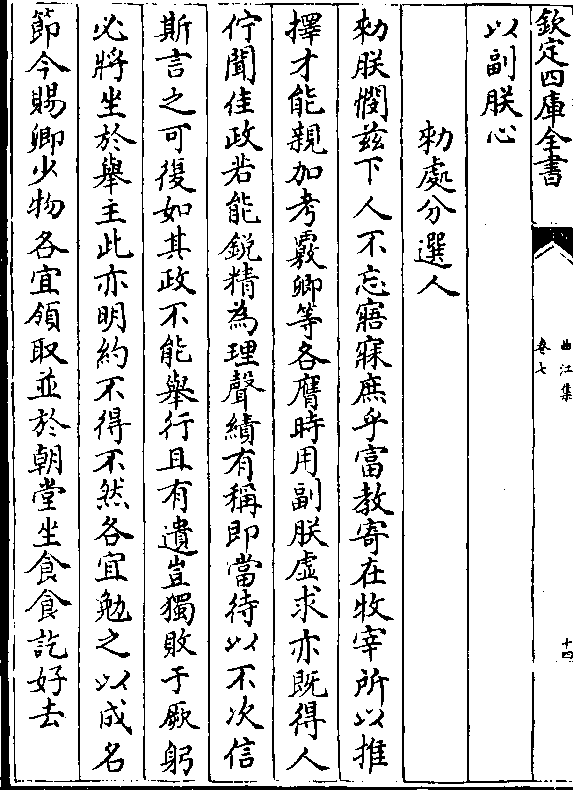 欽定四庫全書
曲江集
卷七
十四
以副朕心
勅處分選人
勅朕憫兹下人不忘寤寐庶乎富教寄在牧宰所以推
擇才能親加考覈卿等各膺時用副朕虚求亦既得人
佇聞佳政若能鋭精為理聲績有稱即當待以不次信
斯言之可復如其政不能舉行且有遺豈獨敗于厥躬
必將坐於舉主此亦明約不得不然各宜勉之以成名
節今賜卿少物各宜領取並於朝堂坐食食訖好去